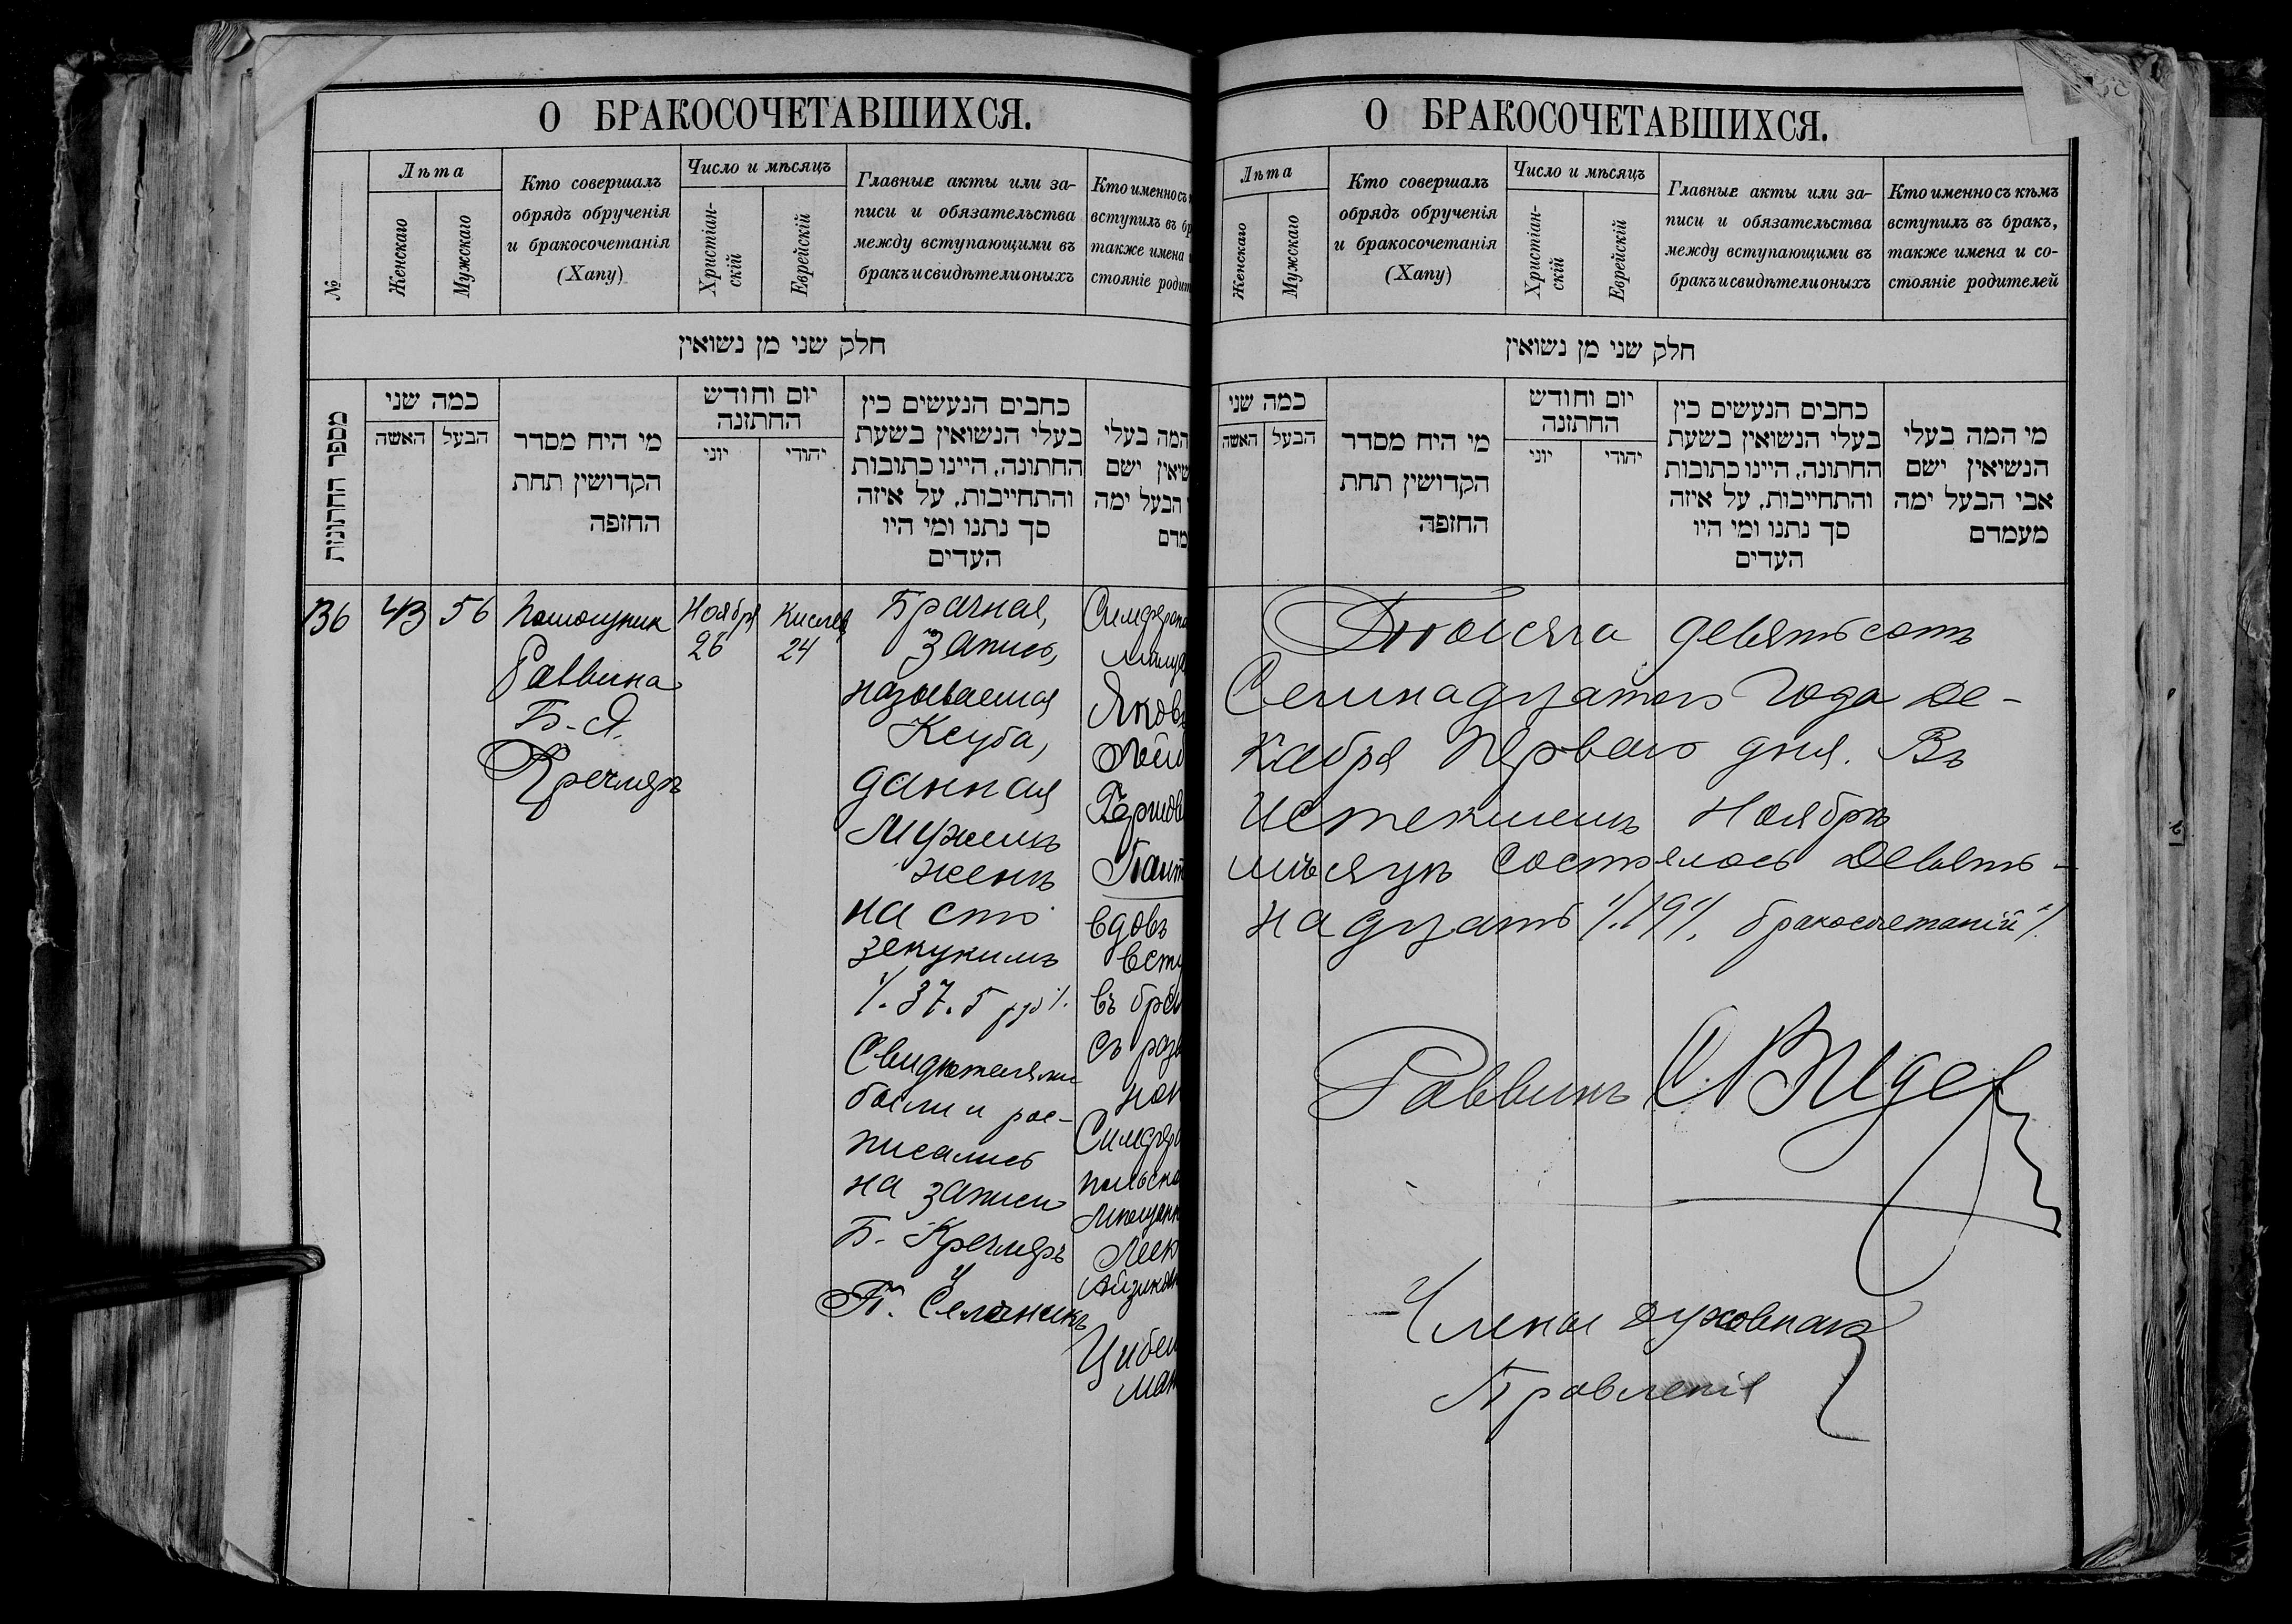 О БРАКОСОЧЕТАВШИХСЯ.
№
Лѣта
Женскаго
Мужскаго
Кто совершалъ
обрядъ обрученія
и бракосочетанія
(Хапу)
Число и мѣсяцъ
Христіан-
скій
Еврейскій
Главные акты или за-
писи и обязательства
между вступающими въ
бракъ и свидѣтели оныхъ
Кто именно съ
вступилъ въ бр
также имена
стояніе родит
חלק שני מן נשואין
מספר החתונות
כמה שני
האשה
הבעל
מי היח מסדר
הקדושין תחת
החופה
יום וחודש
החתונה
יוני
יהודי
כחבים הנעשים כין
בעלי הנשואין בשעת
החתונה, היינו כתובות
והתחייבות, על איזה
סך נתנו ומי היו
העדים
המה בעלי
שיאין ישם
הבעל ימה
מדם
136
43
56
Помощник
Раввина
Б. Я.
Кречмеръ
Ноября
26
Кислев
24
Брачная,
запись,
называемая
Ксуба,
данная
Мужемъ
женѣ
на сто
зекукимъ
/. 37.5 руб /.
Свидѣтелями
были и рос-
писались
на записи
Б. Кречмеръ
и
П. Селяникъ
Симферопо
Яковъ
вдовъ
всту
въ бра
съ разв
ной
Симферо
польско
Мѣщанк
Айзиков
Цибел
ман
О БРАКОСОЧЕТАВШИХСЯ.
Лѣта
Женскаго
Мужскаго
Кто совершалъ
обрядъ обрученія
и бракосочетанія
(Хапу)
Число и мѣсяцъ
Христіан-
скій
Еврейскій
Главные акты или за-
писи и обязательства
между вступающими въ
бракъ и свидѣтели оныхъ
Кто именно съ кѣмъ
вступилъ въ бракъ,
также имена и со-
стояніе родителей
חלק שני מן נשואין
כמה שני
האשה
הבעל
מי היח מסדר
הקדושין תחת
החופה
יום וחודש
החתונה
יוני
יהודי
כחבים הנעשים כין
בעלי הנשואין בשעת
החתונה, היינו כתובות
והתחייבות, על איזה
סך נתנו ומי היו
העדים
מי המה בעלי
הנשיאין ישם
אבי הבעל ימה
מעמדם
Тысяча девятьсотъ
Семнадцатого года де-
кабря Перваго дня. Въ
истекшемъ Ноябрѣ
мѣсяцѣ состоялось девять-
надцать /. 19 /. бракосочетаній /.
Раввинъ
Члены духовнаго
Правленія